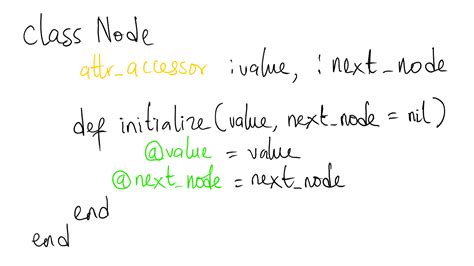 class Node
attr_accessor :value, :next_node
def initialize(value, next_node = nil)
@value = value
@next_node = next_node
end
end